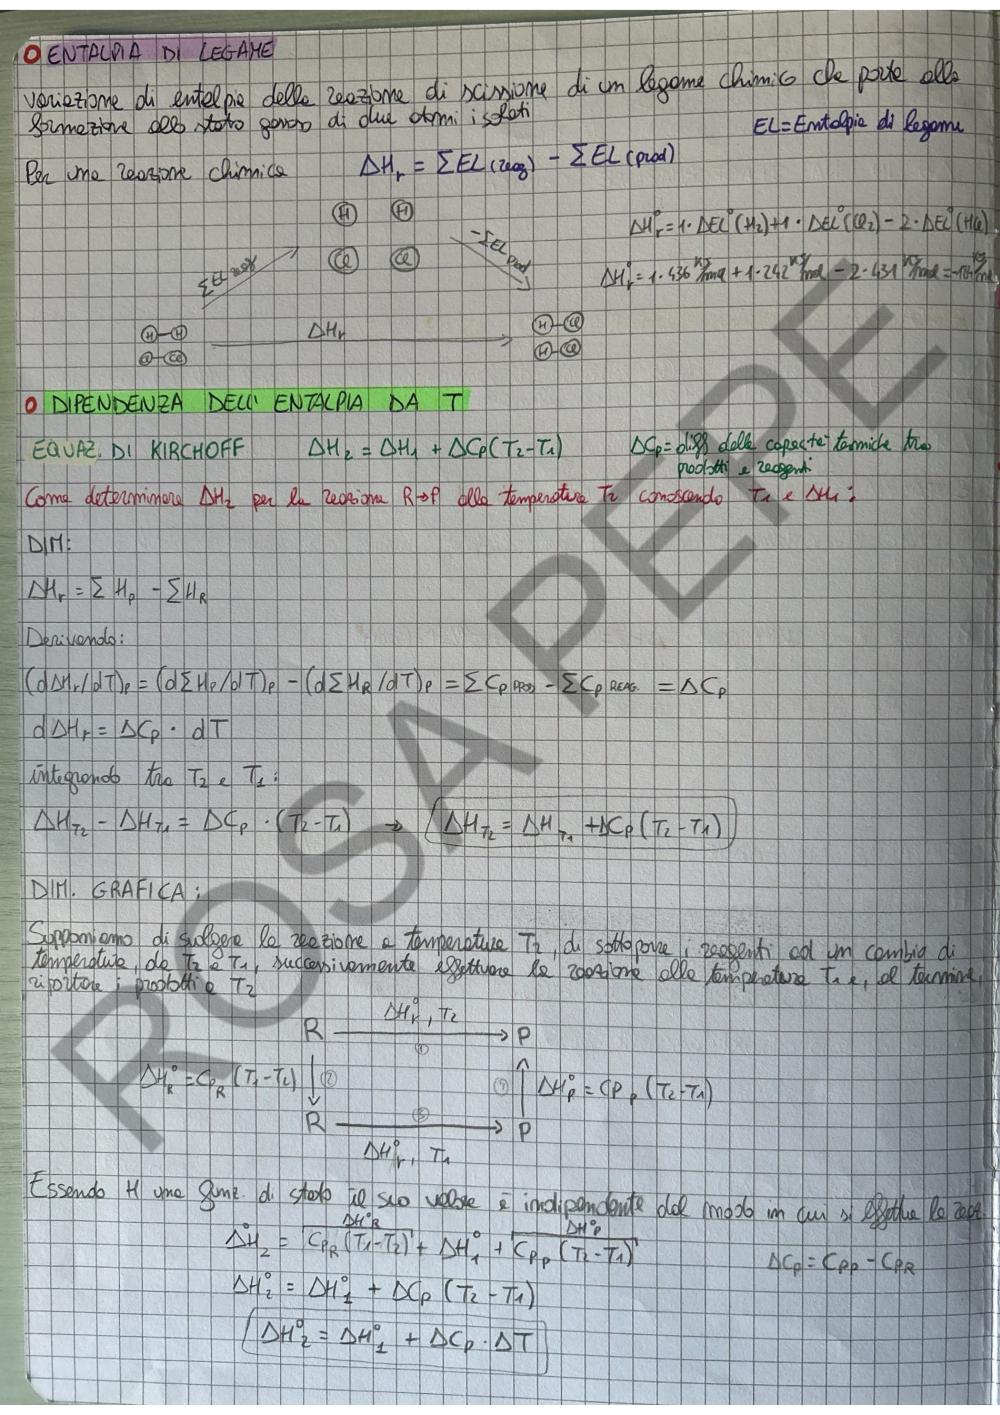 O ENTALPIA DI LEGAME
variazione di entalpia della reazione di scissione di un legame chimico che porta alla
formazione allo stato gassoso di due atomi isolati
EL=Entalpia di legame
Per una reazione chimica ΔHr = ΣEL(reag) - ΣEL(prod)
ΔH°r=1·ΔEL°(H2)+1·ΔEL°(Cl2)-2·ΔEL°(HCl)
ΔH°r=1·436 KJ/mol+1·242 KJ/mol-2·431 KJ/mol=-184 KJ/mol
H H
Cl Cl
ΣEL reag
-ΣEL prod
H-H
Cl-Cl
ΔHr
H-Cl
H-Cl
O DIPENDENZA DELL' ENTALPIA DA T
EQUAZ. DI KIRCHOFF ΔH2=ΔH1+ΔCp(T2-T1) ΔCp=diff delle capacità termiche tra
prodotti e reagenti
Come determinare ΔH2 per la reazione R→P alla temperatura T2 conoscendo T1 e ΔH1:
DIM:
ΔHr=ΣHp-ΣHR
Derivando:
(dΔHr/dT)p=(dΣHp/dT)p-(dΣHR/dT)p=ΣCp PROD-ΣCp REAG.=ΔCp
dΔHr=ΔCp·dT
integrando tra T2 e T1:
ΔHT2-ΔHT1=ΔCp·(T2-T1) → ΔHT2=ΔHT1+ΔCp(T2-T1)
DIM. GRAFICA:
Supponiamo di svolgere la reazione a temperatura T2, di sottoporre i reagenti ad un cambio di
temperatura, da T2 a T1, successivamente effettuare la reazione alla temperatura T1 e, al termine,
riportare i prodotti a T2
ΔH°r, T2
R → P
1
ΔH°R=CpR(T1-T2) 2 4 ΔH°p=CPp(T2-T1)
3
R → P
ΔH°r, T1
Essendo H una funz. di stato il suo valore è indipendente dal modo in cui si effettua la reaz.
ΔH°R ΔH°P
ΔH°2=CpR(T1-T2)+ΔH°1+CPp(T2-T1) ΔCp=CPp-CPR
ΔH°2=ΔH°1+ΔCp(T2-T1)
ΔH°2=ΔH°1+ΔCp·ΔT
ROSA PEPE